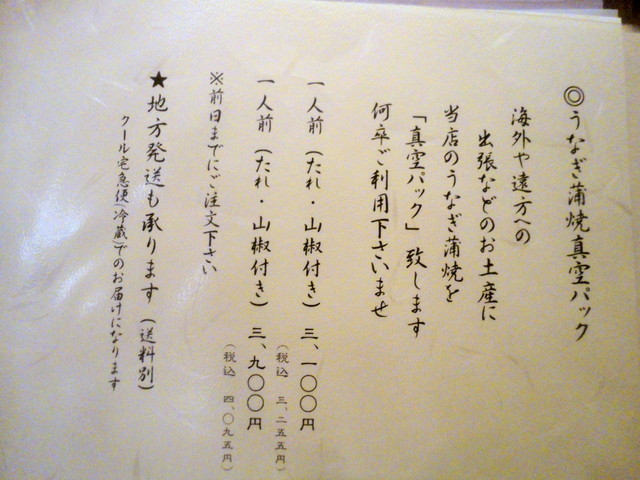 ◎うなぎ蒲焼真空パック
海外や遠方への
出張などのお土産に
当店のうなぎ蒲焼を
「真空パック」致します
何卒ご利用下さいませ
一人前(たれ・山椒付き)三、一〇〇円
(税込 三、二五五円)
一人前(たれ・山椒付き)三、九〇〇円
(税込 四、〇九五円)
※前日までにご注文下さい
★地方発送も承ります(送料別)
クール宅急便(冷蔵)でのお届けになります